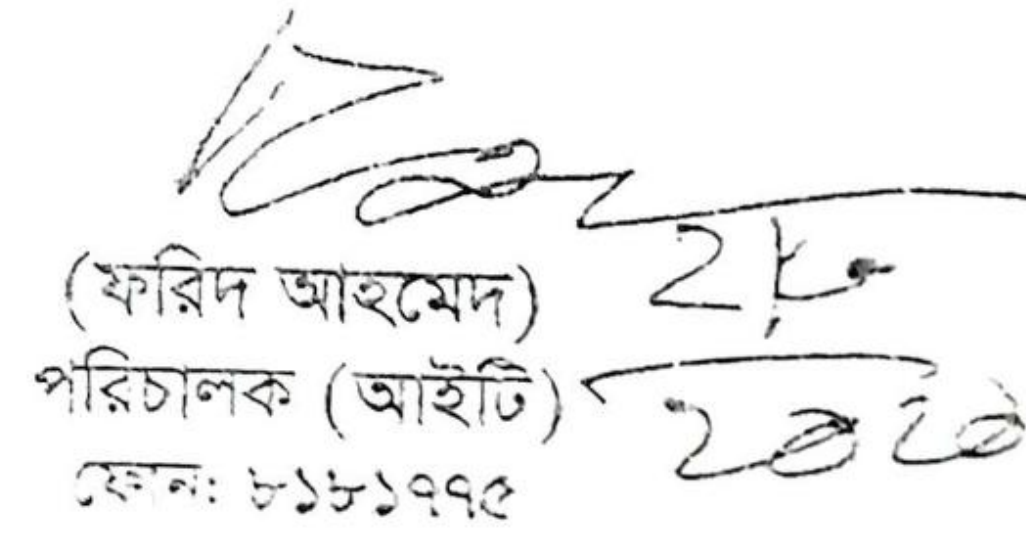 (ফরিদ আহমেদ)
পরিচালক (আইটি)
ফোন: ৮১৮১৭৭৫